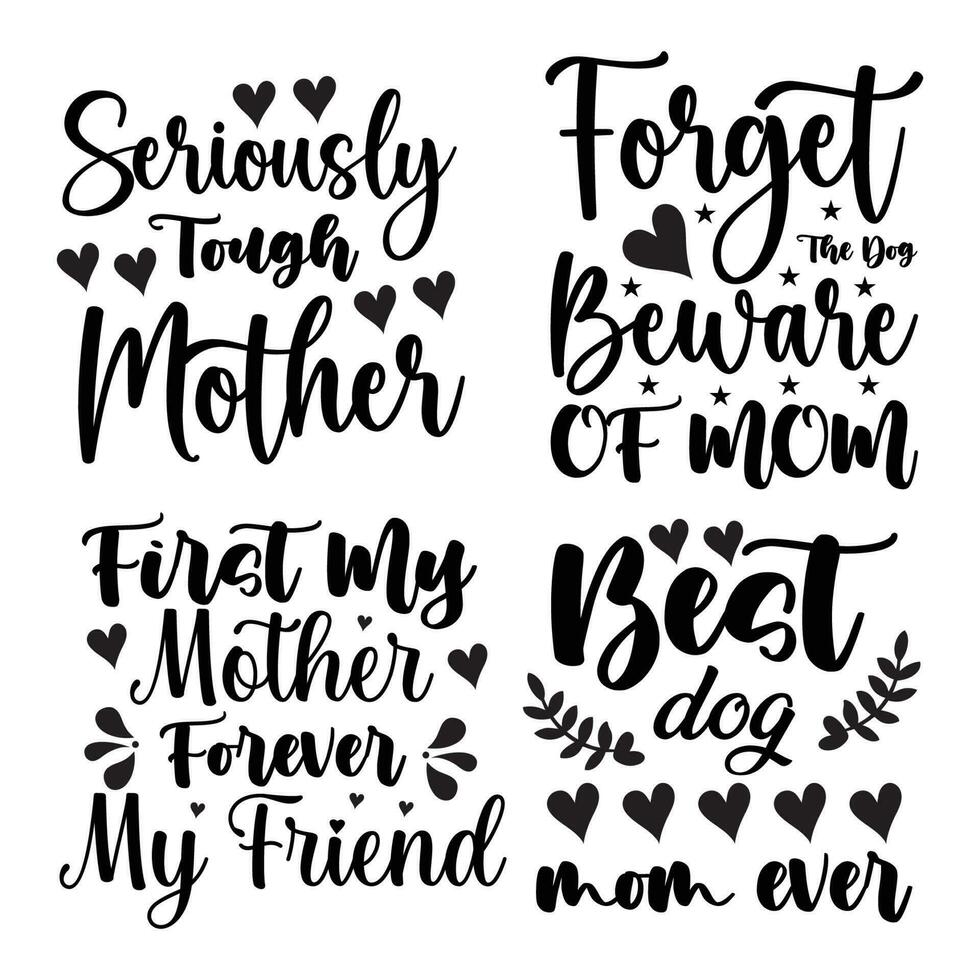 Seriously
Tough
Mother
Forget
The Dog
Beware
OF MOM
First My
Mother
Forever
My Friend
Best
dog
mom ever